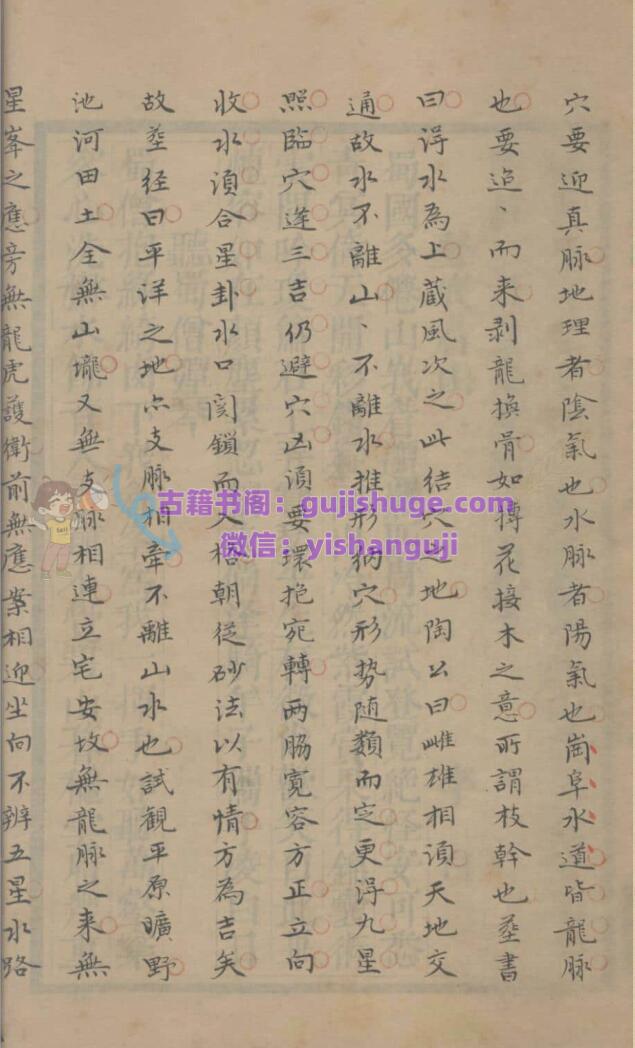 穴要迎真脉地理者陰氣也水脉者陽氣也崗阜水道皆龍脉
也要追、而来剥龍換骨如摶花接木之意所謂枝幹也塟書
曰淂水為上蔵風次之此結穴之地陶公曰雌雄相湏天地交
通故水不離山、不離水推形納穴形势随類而定更淂九星
照臨穴逢三吉仍避穴凶湏要環抱宛轉两脇寛容方正立向
收水湏合星卦水口関鎖而入格朝従砂法以有情方為吉矣
故塟径曰平洋之地点支脉相牽不離山水也試観平原曠野
池河田土全無山壠又無支脉相連立宅安坟無龍脉之来無
星峯之應旁無龍虎護衛前無應案相迎坐向不辨五星水路
古籍书阁：gujishuge.com
微信：yishanguji